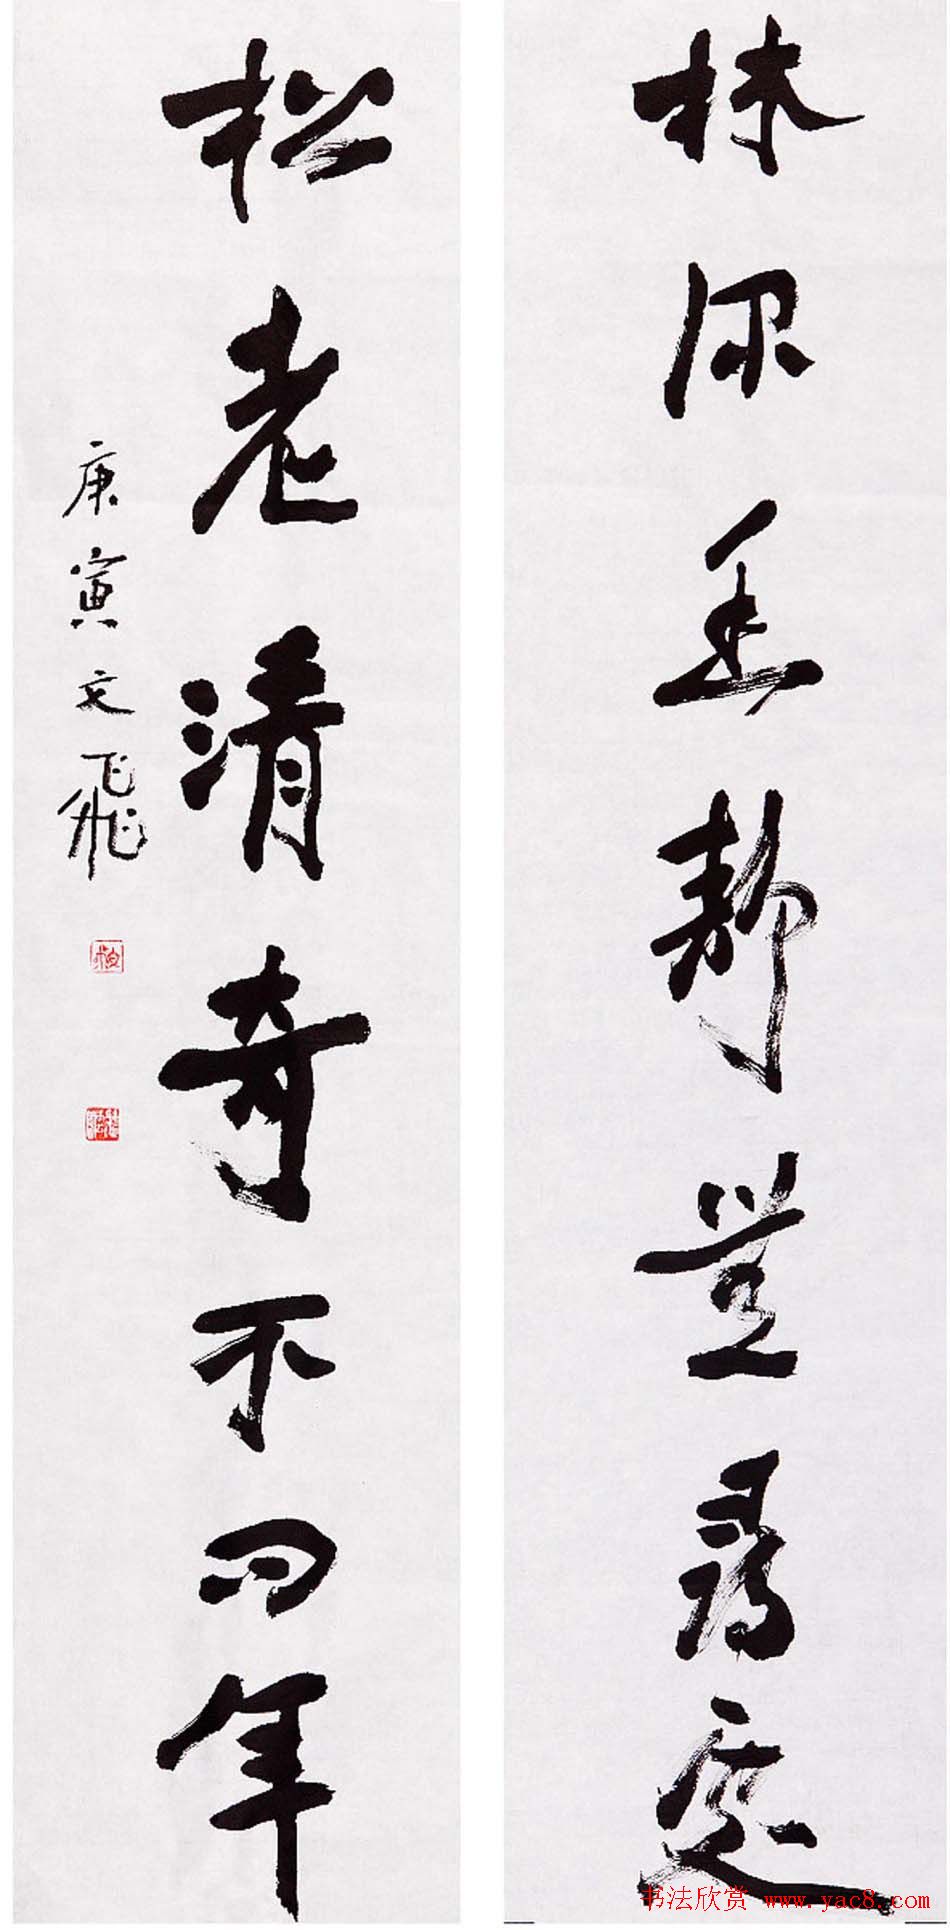 林深静豈尋處
松老清奇不问年
庚寅文飛
书法欣赏 www.yac8.com